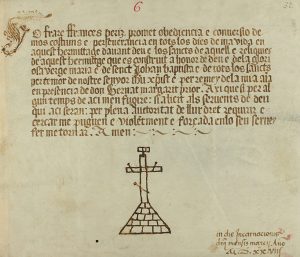 6
Yo frare ffrances periz promet obediencia e conversio de
mos costums e perseverancia en tots los dies de ma vida en
aquest hermitatge davant deu e los sancts de aquell e reliquies
de aquest hermitatge qui es construit a honor de deu e de la glori
osa verge maria e de senct Johan baptista e de tots los sancts
per temor de nostre senyor iħu xpist e per remey de la mia aīa
en presencia de don Bernat margarit prior. Axi que si per al
gun temps de aci men fugire: sia licit als servents de deu
qui aci seran: que per plena auctoritat de llur dret requirir e
cercar me puguen e violetment e forçada en lo seu servey
fer me tornar. Amen
in die Incarnacionis
dñi mensis marcij Año
M. D. xx viij